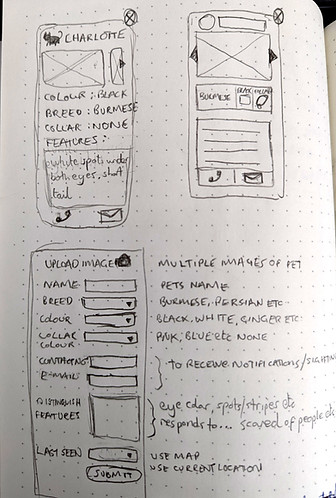 CHARLOTTE
COLOUR : BLACK
BREED : BURMESE
COLLAR : NONE
FEATURES :
white spots under
both eyes, short
tail
BURMESE
BLACK
COLLAR
UPLOAD IMAGE
MULTIPLE IMAGES OF PET
NAME
PETS NAME
BREED
BURMESE, PERSIAN ETC
COLOUR
BLACK, WHITE, GINGER ETC
COLLAR
COLOUR
PINK, BLUE etc NONE
CONTACT NO
E-MAIL
TO RECEIVE NOTIFICATIONS/SIGHTIN
DISTINGUISH
FEATURES
eye color, spots/stripes etc
responds to... scared of people etc
LAST SEEN
USE MAP
USE CURRENT LOCATION
SUBMIT